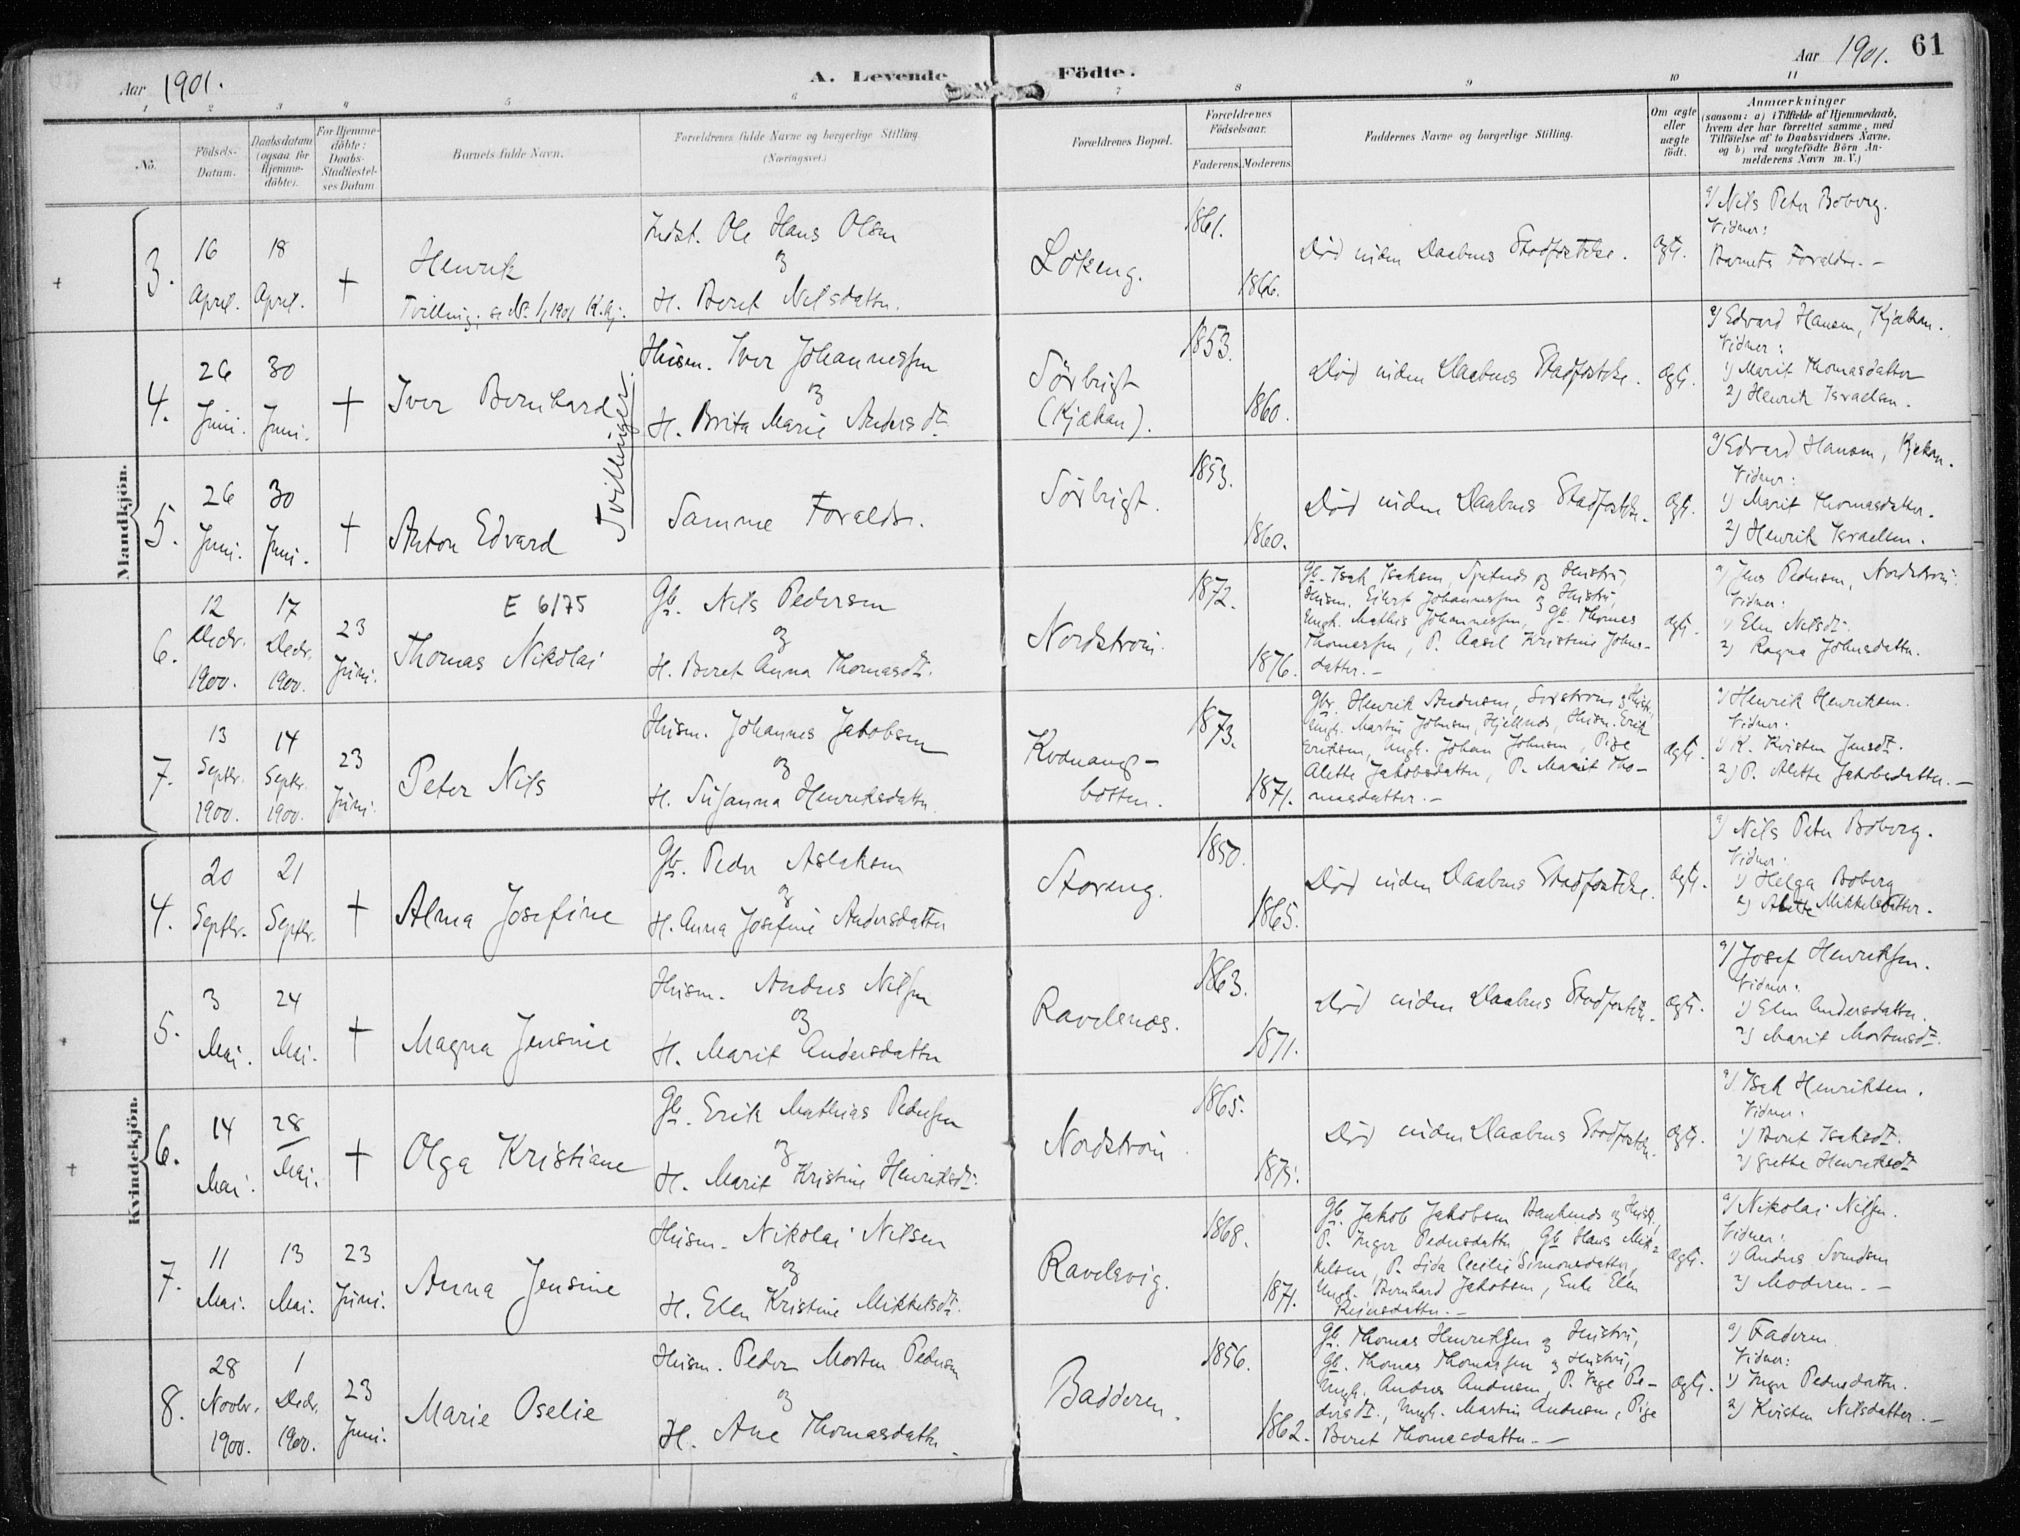 Aar 1901.
A. Levende
Födte.
Aar 1901.
61
1 2 3 4 5 6 7 8 9 10 11
No.
Födsels-
Datum.
Daabsdatum
(ogsaa for
Hjemme-
döbte).
For Hjemme-
döbte:
Daabs-
Stadfæstel-
ses Datum
Barnets fulde Navn.
Forældrenes fulde Navne og borgerlige Stilling.
(Næringsvei.)
Forældrenes Bopæl.
Forældrenes
Födselsaar.
Faderens.
Moderens.
Faddernes Navne og borgerlige Stilling.
Om ægte
eller
uægte
født.
Anmærkninger
(saasom: a) i Tilfælde af Hjemmedaab,
hvem der har forrettet samme, med
Tilföielse af to Daabsvidners Navne.
og b) ved uægtefödte Börn An-
melderens Navn m. V.)
Mandkjön.
3.
16
April.
18
April.
+
Henrik
Tvilling, se No. 1/1901 K.kj.
Indst. Ole Hans Olsen
og
H. Beret Nilsdatter.
Lökeng.
1861.
1866.
Död inden Daabens Stadfæstelse.
ægte.
a) Nils Peter Boberg.
Vidner:
Barnets Forældre. –
4.
26
Juni.
30
Juni.
+
Iver Bernhard
Tvillinger.
Husm. Iver Johannessen
og
H. Brita Marie Andersdtr.
Sörbugt
(Kjækan).
1853.
1860.
Död inden Daabens Stadfæstelse.
ægte.
a) Edvard Hansen, Kjækan.
Vidner:
1) Marit Thomasdatter
2) Henrik Israelsen.
5.
26
Juni.
30
Juni.
+
Anton Edvard
Samme Forældre.
Sörbugt.
1853.
1860.
Död inden Daabens Stadfæstelse.
ægte.
a) Edvard Hansen, Kjækan.
Vidner:
1) Marit Thomasdatter.
2) Henrik Israelsen.
6.
12
Decbr.
1900.
17
Decbr.
1900.
23
Juni.
E 6/75
Thomas Nikolai
Gb. Nils Pedersen
og
H. Beret Anna Thomasdtr.
Nordström.
1872.
1876.
Gb. Isak Isaksen, og Hustru,
Husm. Eilert Johannessen og Hustru,
Ungk. Mathis Johannessen, Gb. Thomas
Thomassen, P. Aasel Kristine Johns-
datter. –
ægte.
a) Jens Pedersen, Nordström.
Vidner:
1) Elen Nilsdtr.
2) Ragna Johnsdatter.
7.
13
Septbr.
1900.
14
Septbr.
1900.
23
Juni.
Peter Nils
Husm. Johannes Jakobsen
og
H. Susanna Henriksdatter.
Kvænangs-
botten.
1873.
1871.
Gbr. Henrik Andersen, Sörström og Hustru,
Ungk. Martin Johnsen, Husm. Erik
Eriksen, Ungk. Johan Johnsen, Pige
Alette Jakobsdatter, P. Marit Tho-
masdatter. –
ægte.
a) Henrik Henriksen.
Vidner:
1) K. Kirsten Jensdtr.
2) P. Alette Jakobsdatter. –
Kvindekjön.
4.
20
Septbr.
21
Septbr.
+
Alma Josefine
Gb. Peder Aslaksen
og
H. Anna Josefine Andersdatter
Storeng.
1850.
1865.
Död inden Daabens Stadfæstelse.
ægte.
a) Nils Peter Boberg.
Vidner:
1) Helga Boberg
2) Alette Mikkelsdatter.
5.
3
Mai.
24
Mai.
+
Magna Jensine
Husm. Anders Nilsen
og
H. Marit Andersdatter
Ravelsnæs.
1863.
1871.
Död inden Daabens Stadfæstelse.
ægte.
a) Josef Henriksen.
Vidner:
1) Elen Andersdatter.
2) Marit Mortensdtr.
6.
14
Mai.
28
Mai.
+
Olga Kristiane
Gb. Erik Mathias Pedersen
og
H. Marit Kristine Henriksdtr.
Nordström
1865.
1875.
Död inden Daabens Stadfæstelse.
ægte.
a) Isak Henriksen.
Vidner:
1) Beret Isaksdtr.
2) Grethe Henriksdtr
7.
11
Mai.
13
Mai.
23
Juni.
Anna Jensine
Husm. Nikolai Nilsen
og
H. Elen Kristine Mikkelsdtr.
Ravelsvig.
1868.
1871.
Gb. Jakob Jakobsen og Hustru,
P. Inger Pedersdatter, Gb Hans Mik-
kelsen, P. Lida Cecilie Simonsdatter,
Ungk. Bernhard Jakobsen, Enke Elen
Reiersdatter. –
ægte.
a) Nikolai Nilsen.
Vidner:
1) Anders Svendsen
2) Moderen. –
8.
28
Novbr.
1900.
1
Decbr.
1900.
23
Juni.
Marie Oselie
Husm. Peder Morten Pedersen
og
H. Ane Thomasdatter.
Badderen.
1856.
1862.
Gb. Thomas Henriksen og Hustru,
Gb. Thomas Thomassen og Hustru,
Ungk. Anders Andersen, P. Inge Pe-
dersdtr., Ungk. Martin Andersen, Pige
Beret Thomasdatter. –
ægte.
a) Faderen
Vidner:
1) Inger Pedersdatter.
2) Kirsten Nilsdatter. –